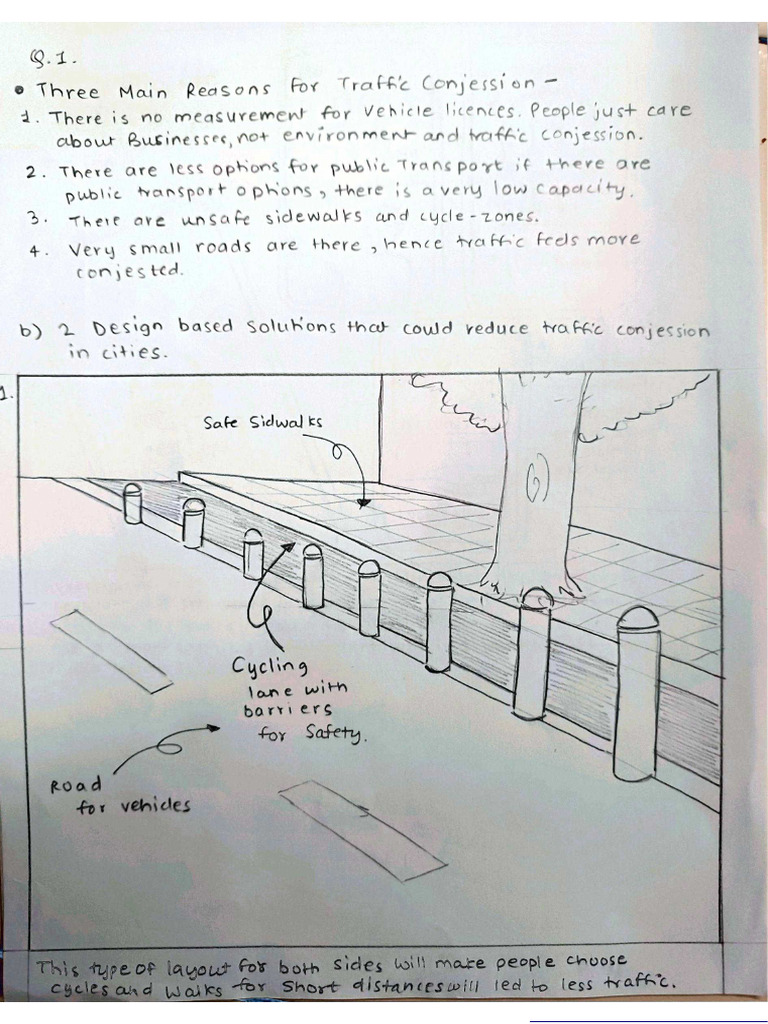 Q.1.
• Three Main Reasons for Traffic Conjession -
1. There is no measurement for Vehicle licences. People just care
about Businesses, not environment and traffic conjession.
2. There are less options for public Transport if there are
public transport options, there is a very low capacity.
3. There are unsafe sidewalks and cycle-zones.
4. Very small roads are there, hence traffic feels more
conjested.
b) 2 Design based solutions that could reduce traffic conjession
in cities.
1.
Safe Sidwalks
Cycling
lane with
barriers
for Safety.
Road
for vehicles
This type of layout for both sides will make people choose
cycles and walks for short distances will led to less traffic.